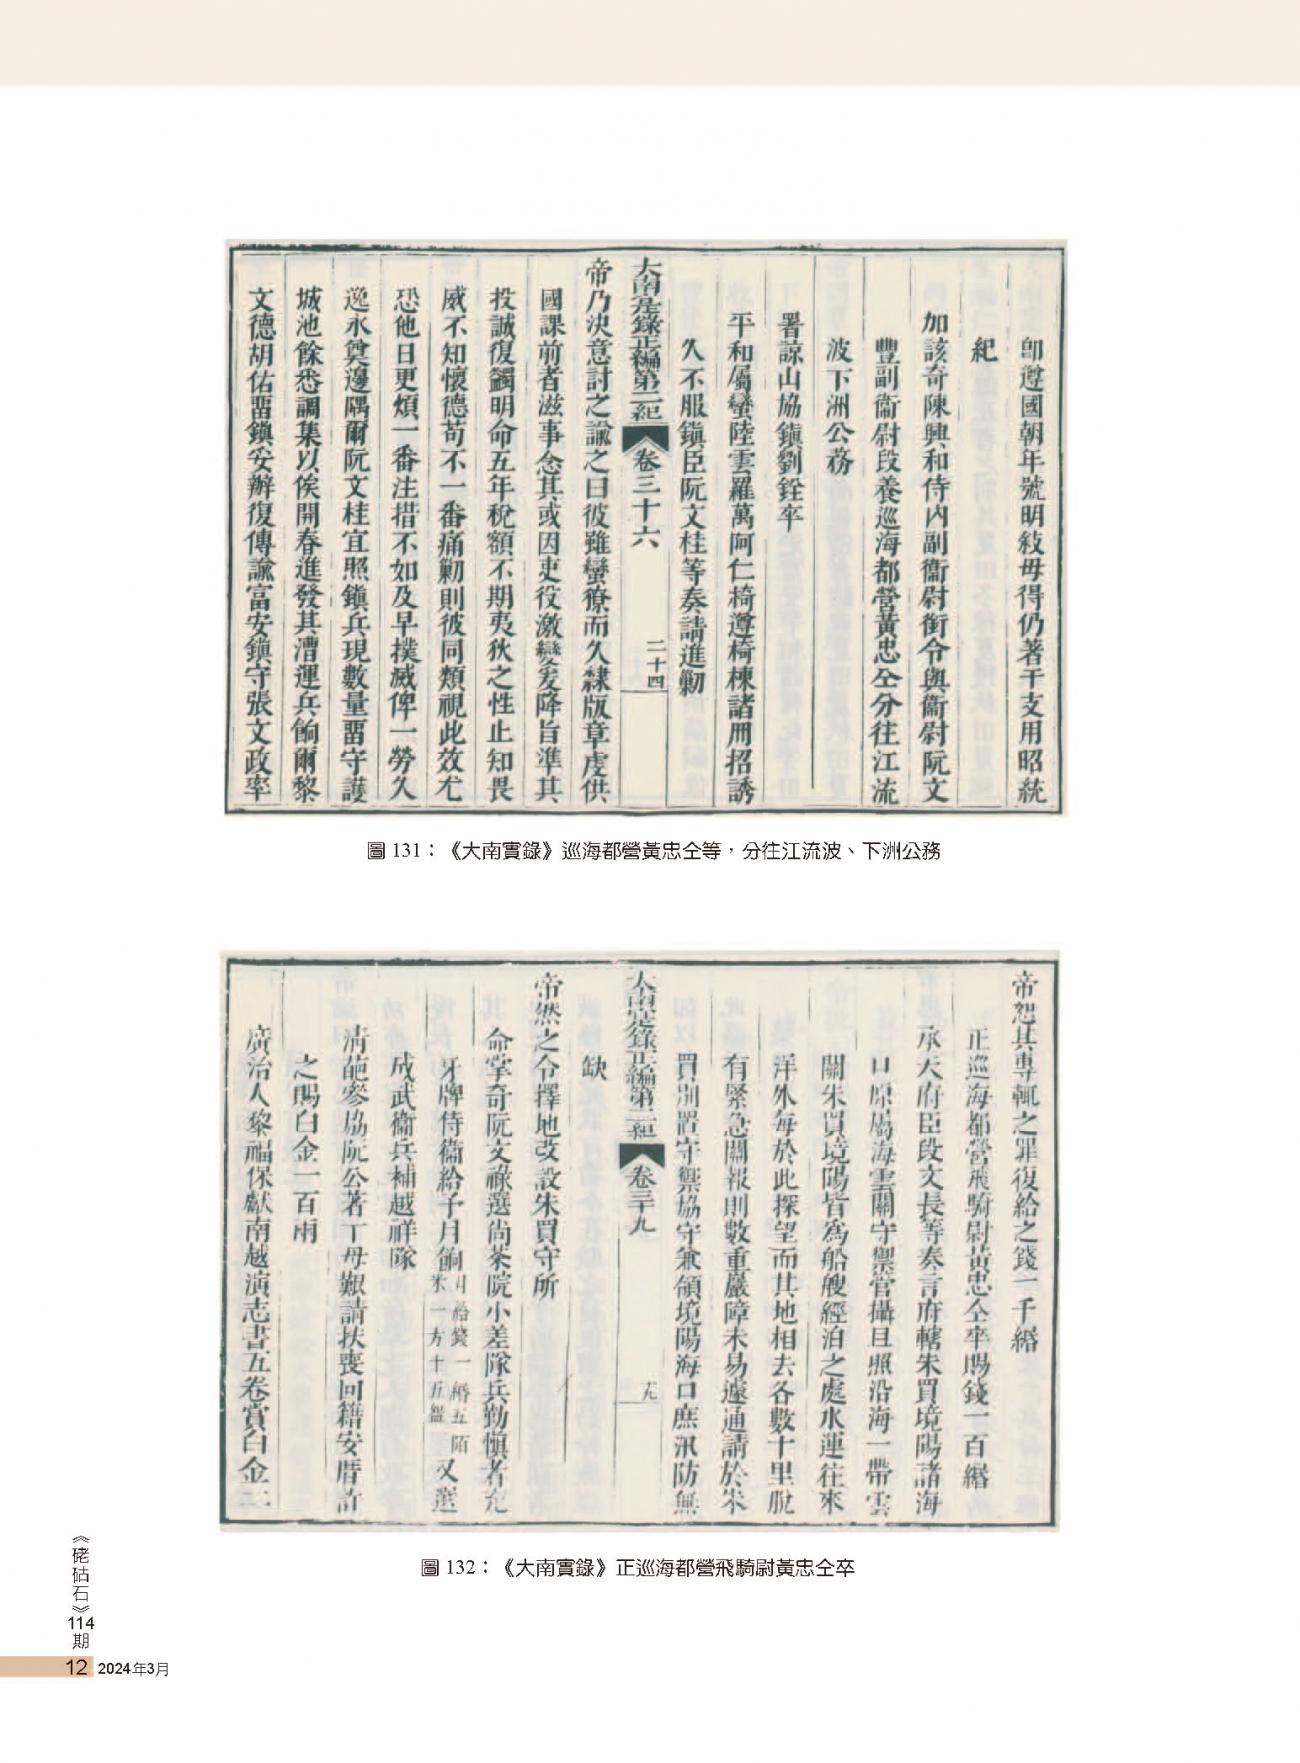 卽遵國朝年號明敍毋得仍著干支用昭統
紀
加該奇陳興和侍内副衞尉銜令與衞尉阮文
豐副衞尉段養巡海都營黃忠仝分往江流
波下洲公務
署諒山協鎭劉銓卒
平和屬蠻陸雲羅萬阿仁椅遵椅棟諸冊招誘
久不服鎭臣阮文桂等奏請進勦
大南寔錄正編第二紀 卷三十六 二十四
帝乃決意討之諭之曰彼雖蠻獠而久隸版章虔供
國課前者滋事念其或因吏役激變爰降旨準其
投誠復蠲明命五年稅額不期夷狄之性止知畏
威不知懷德苟不一番痛勦則彼同類視此效尤
恐他日更煩一番注措不如及早撲滅俾一勞久
逸永奠邊隅爾阮文桂宜照鎭兵現數量畱守護
城池餘悉調集以俟開春進發其漕運兵餉爾黎
文德胡佑畱鎭妥辦復傳諭富安鎭守張文政率
圖 131：《大南實錄》巡海都營黃忠仝等，分往江流波、下洲公務
帝恕其專輒之罪復給之錢一千緡
正巡海都營飛騎尉黃忠仝卒賜錢一百緡
承天府臣段文長等奏言府轄朱買境陽諸海
口原屬海雲關守禦管攝且照沿海一帶雲
關朱買境陽皆爲船艘經泊之處水運往來
洋外每於此探望而其地相去各數十里脫
有緊急關報則數重嚴障未易遽通請於朱
買別置守禦協守兼領境陽海口庶汛防無
大南寔錄正編第二紀 卷三十九 十九
缺
帝然之令擇地改設朱買守所
命掌奇阮文祿選尚茶院小差隊兵勤愼者充
牙牌侍衞給予月餉月給錢一緡五陌米一方十五鎰又選
成武衞兵補越祥隊
淸葩參協阮公著丁母艱請扶喪回籍安厝許
之賜白金一百兩
廣治人黎福保獻南越演志書五卷賞白金二
圖 132：《大南實錄》正巡海都營飛騎尉黃忠仝卒
《硓𥑮石》114期
12 2024年3月